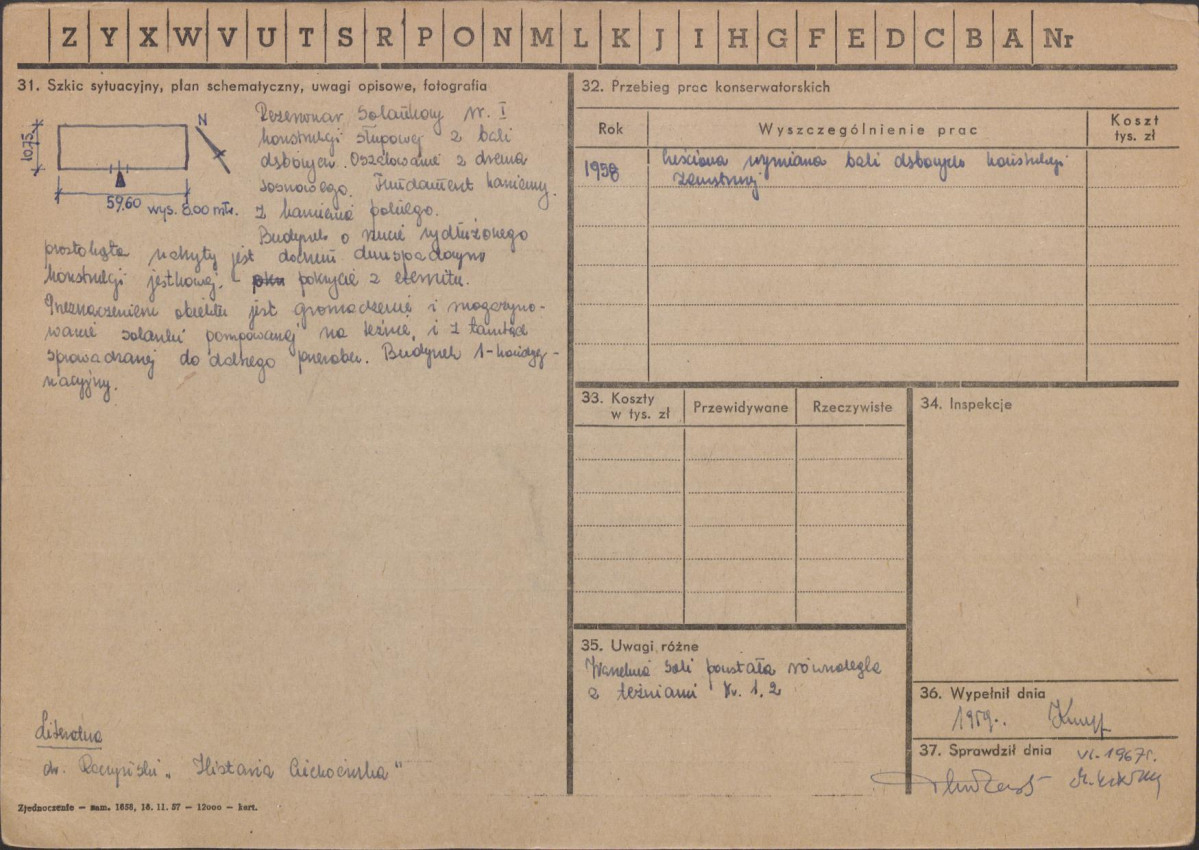 Z Y X W V U T S R P O N M L K J I H G F E D C B A Nr
31. Szkic sytuacyjny, plan schematyczny, uwagi opisowe, fotografia
N
10.75
59.60
wys. 8.00 mtr.
Rezerwuar Solankowy Nr. I
konstrukcji słupowej z bali
dębowych. Oszalowanie z drewna
sosnowego. Fundament kamienny.
z kamienia polnego.
Budynek o rzucie wydłużonego
prostokąta nakryty jest dachem dwuspadowym
konstrukcji jętkowej. pokrycie z eternitu.
Przeznaczeniem obiektu jest gromadzenie i magazyno-
wanie solanki pompowanej na tężnie, i z tamtąd
sprowadzanej do dalszego przerobu. Budynek 1-kondyg-
nacyjny.
Literatura
dr. Raczyński „Historia Ciechocinka"
Zjednoczenie — zam. 1658, 16. 11. 57 — 12000 — kart.
32. Przebieg prac konserwatorskich
Rok
Wyszczególnienie prac
Koszt
tys. zł
1958 Częściowa wymiana bali dębowych konstrukcji
zewnętrznej
33. Koszty
w tys. zł
Przewidywane
Rzeczywiste
34. Inspekcje
35. Uwagi różne
Warzelnia Soli powstała równolegle
z tężniami Nr. 1, 2
36. Wypełnił dnia
1959.
37. Sprawdził dnia
VI. 1967r.